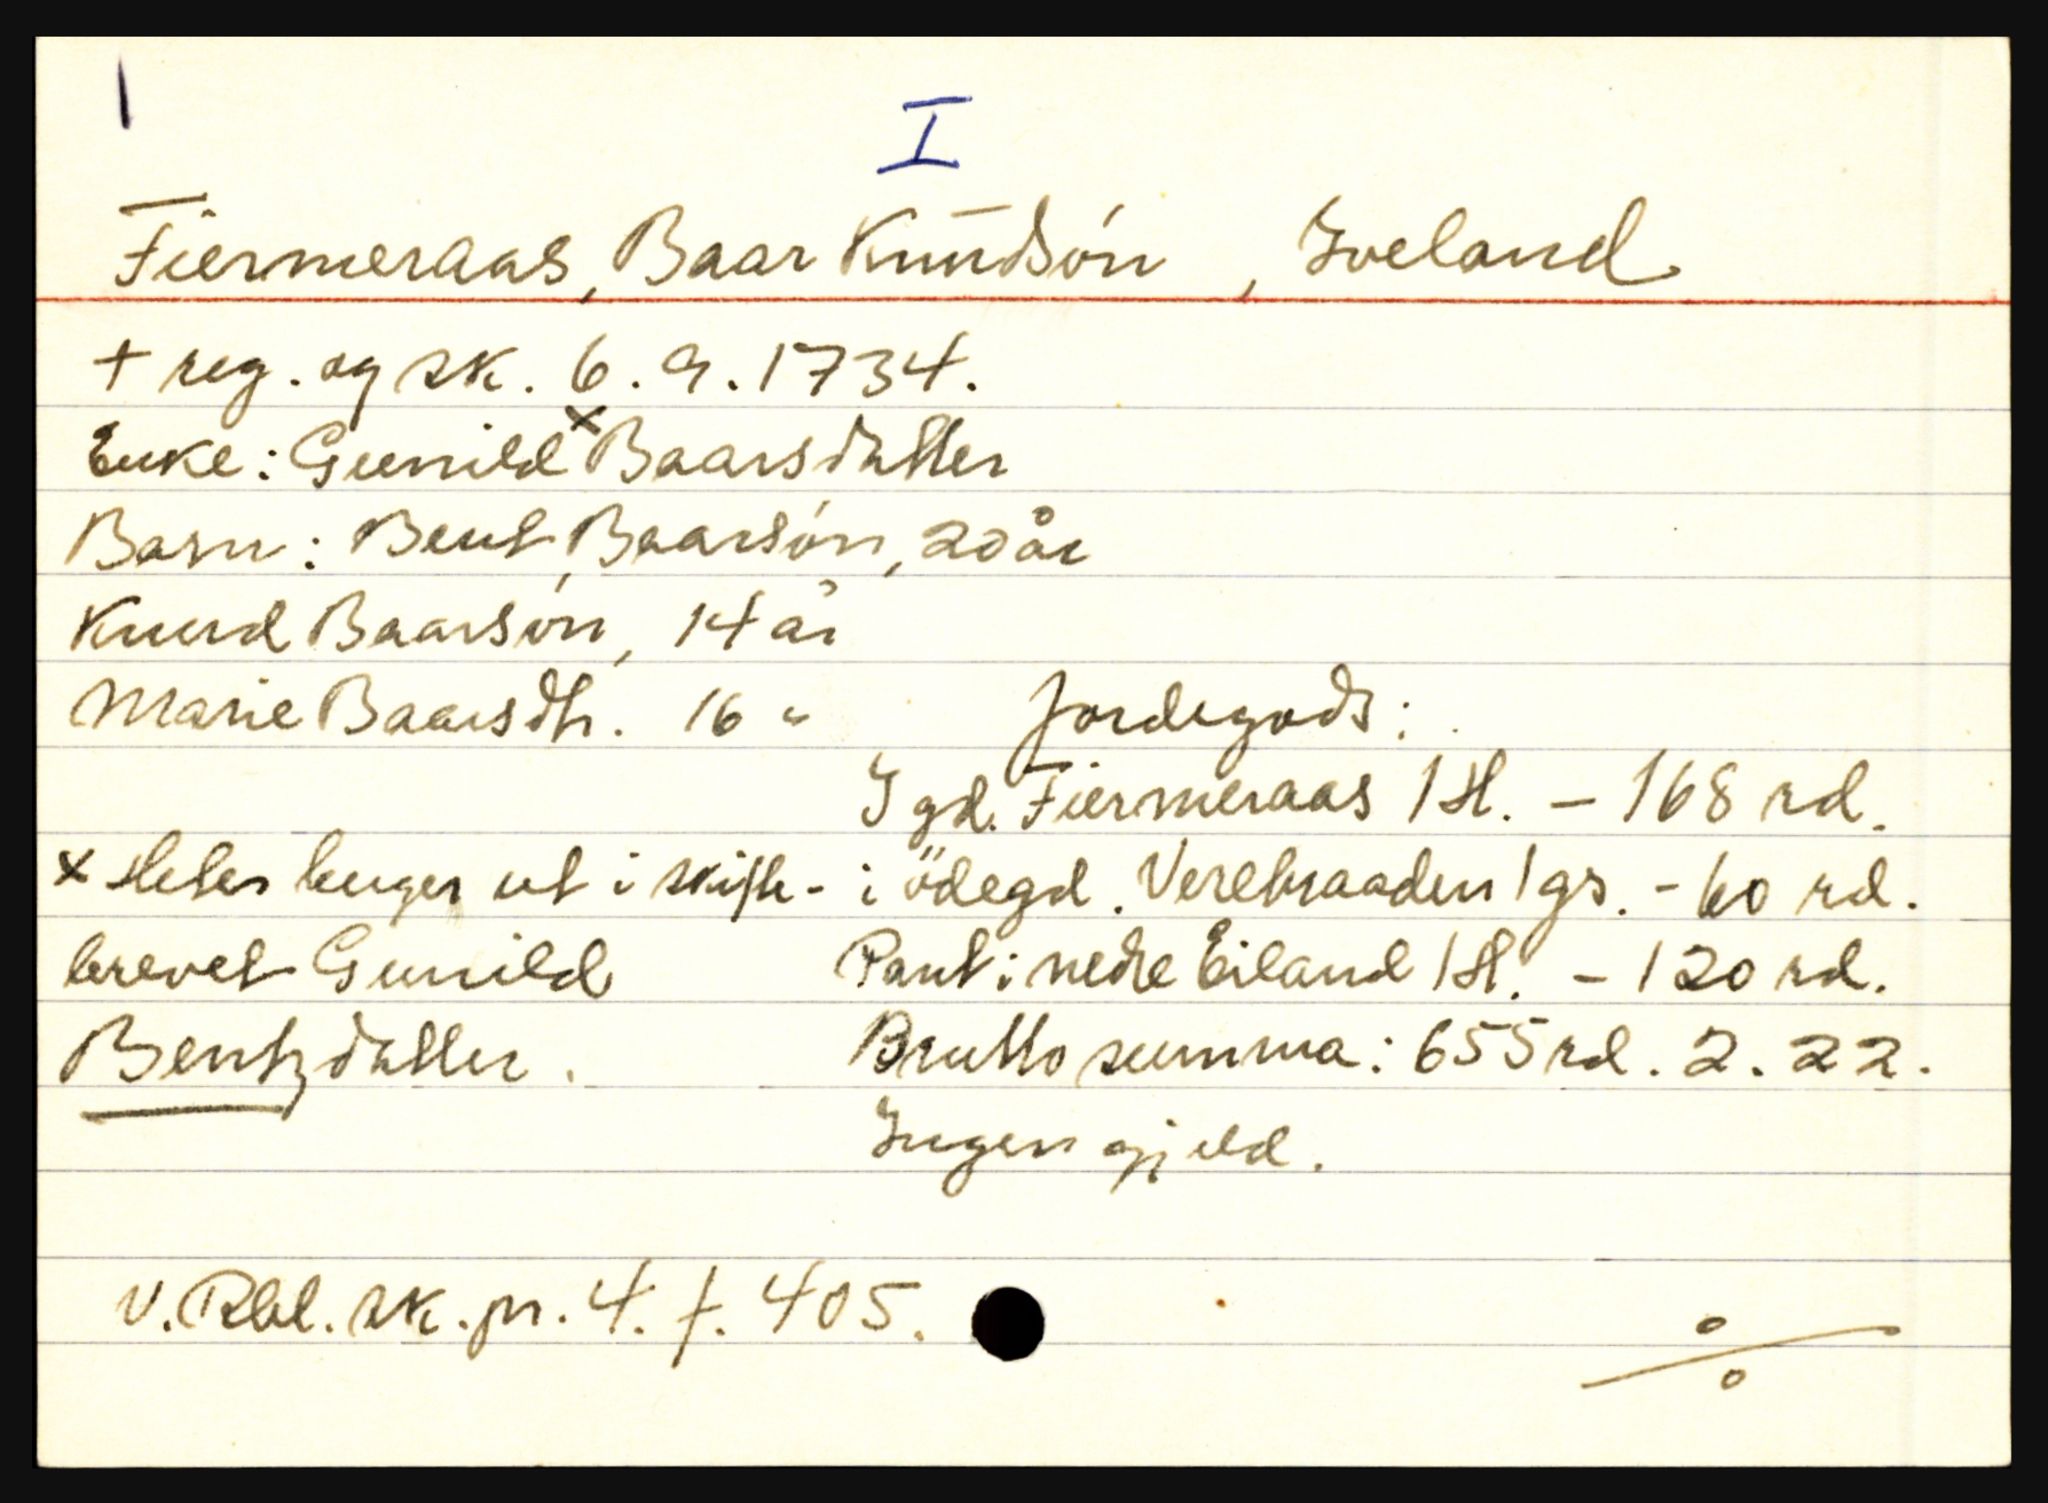 1
I
Fiermeraas, Baar Knudsón, Iveland
+ reg. og sk. 6. 9. 1734.
Enke: Gunild x Baarsdatter
Barn: Bent Baarsón, 20 år
Knud Baarsón, 14 år
Marie Baarsdtr. 16 "
Jordegods:
I gd. Fiermeraas 1 H. - 168 rd.
i ödegd. 1 gs. - 60 rd.
Pant i nedre Eiland 1 H. - 120 rd.
Brutto summa: 655 rd. 2. 22.
Ingen gjeld.
x Heter lenger ut i skifte-
brevet Gunild
Bentzdatter.
V. Rbl. sk. pr. 4. f. 405.